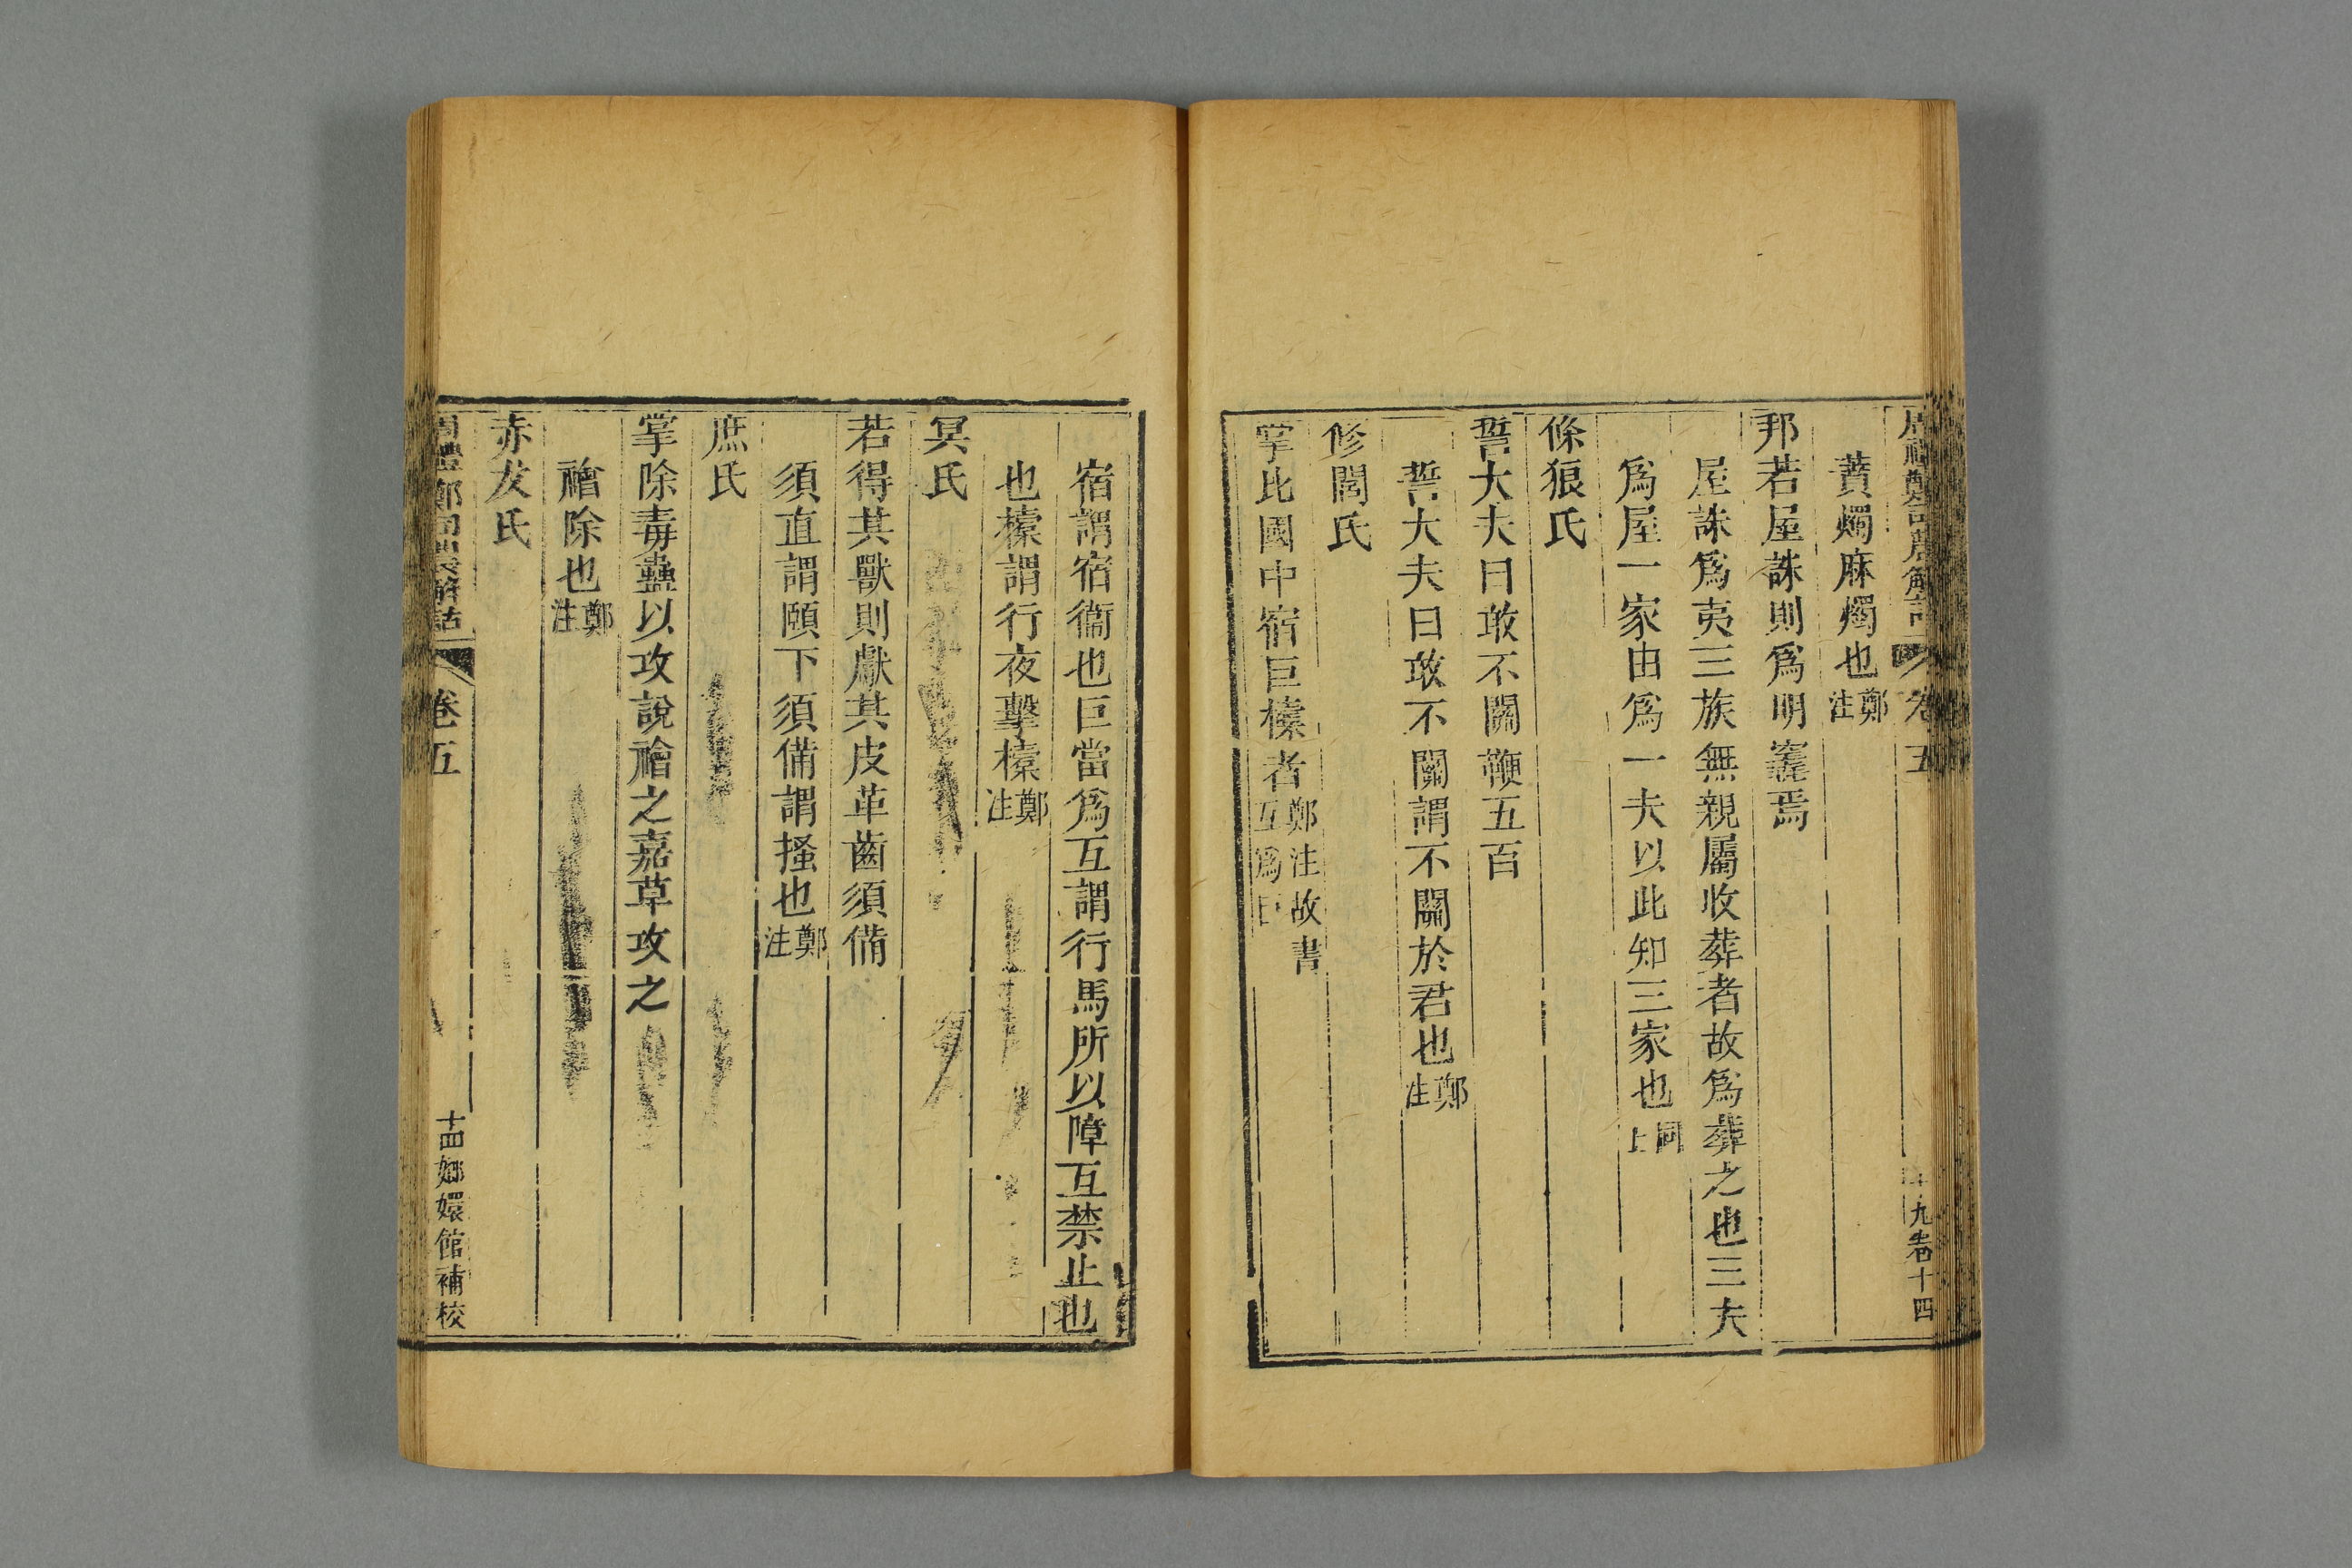 周禮鄭司農解詁 卷五 十四
蕡燭麻燭也鄭注
邦若屋誅則爲明竁焉
屋誅爲夷三族無親屬收葬者故爲葬之也三夫
爲屋一家由爲一夫以此知三家也同上
條狼氏
誓大夫曰敢不關鞭五百
誓大夫曰敢不關謂不關於君也鄭注
修閭氏
掌比國中宿巨㯓者鄭注故書互爲巨
宿謂宿衞也巨當爲互謂行馬所以障互禁止也
也㯓謂行夜擊㯓鄭注
冥氏
若得其獸則獻其皮革齒須備
須直謂頤下須備謂搔也鄭注
庶氏
掌除毒蠱以攻說禬之嘉草攻之
禬除也鄭注
赤犮氏
周禮鄭司農解詁 卷五 十四 嫏嬛館補校